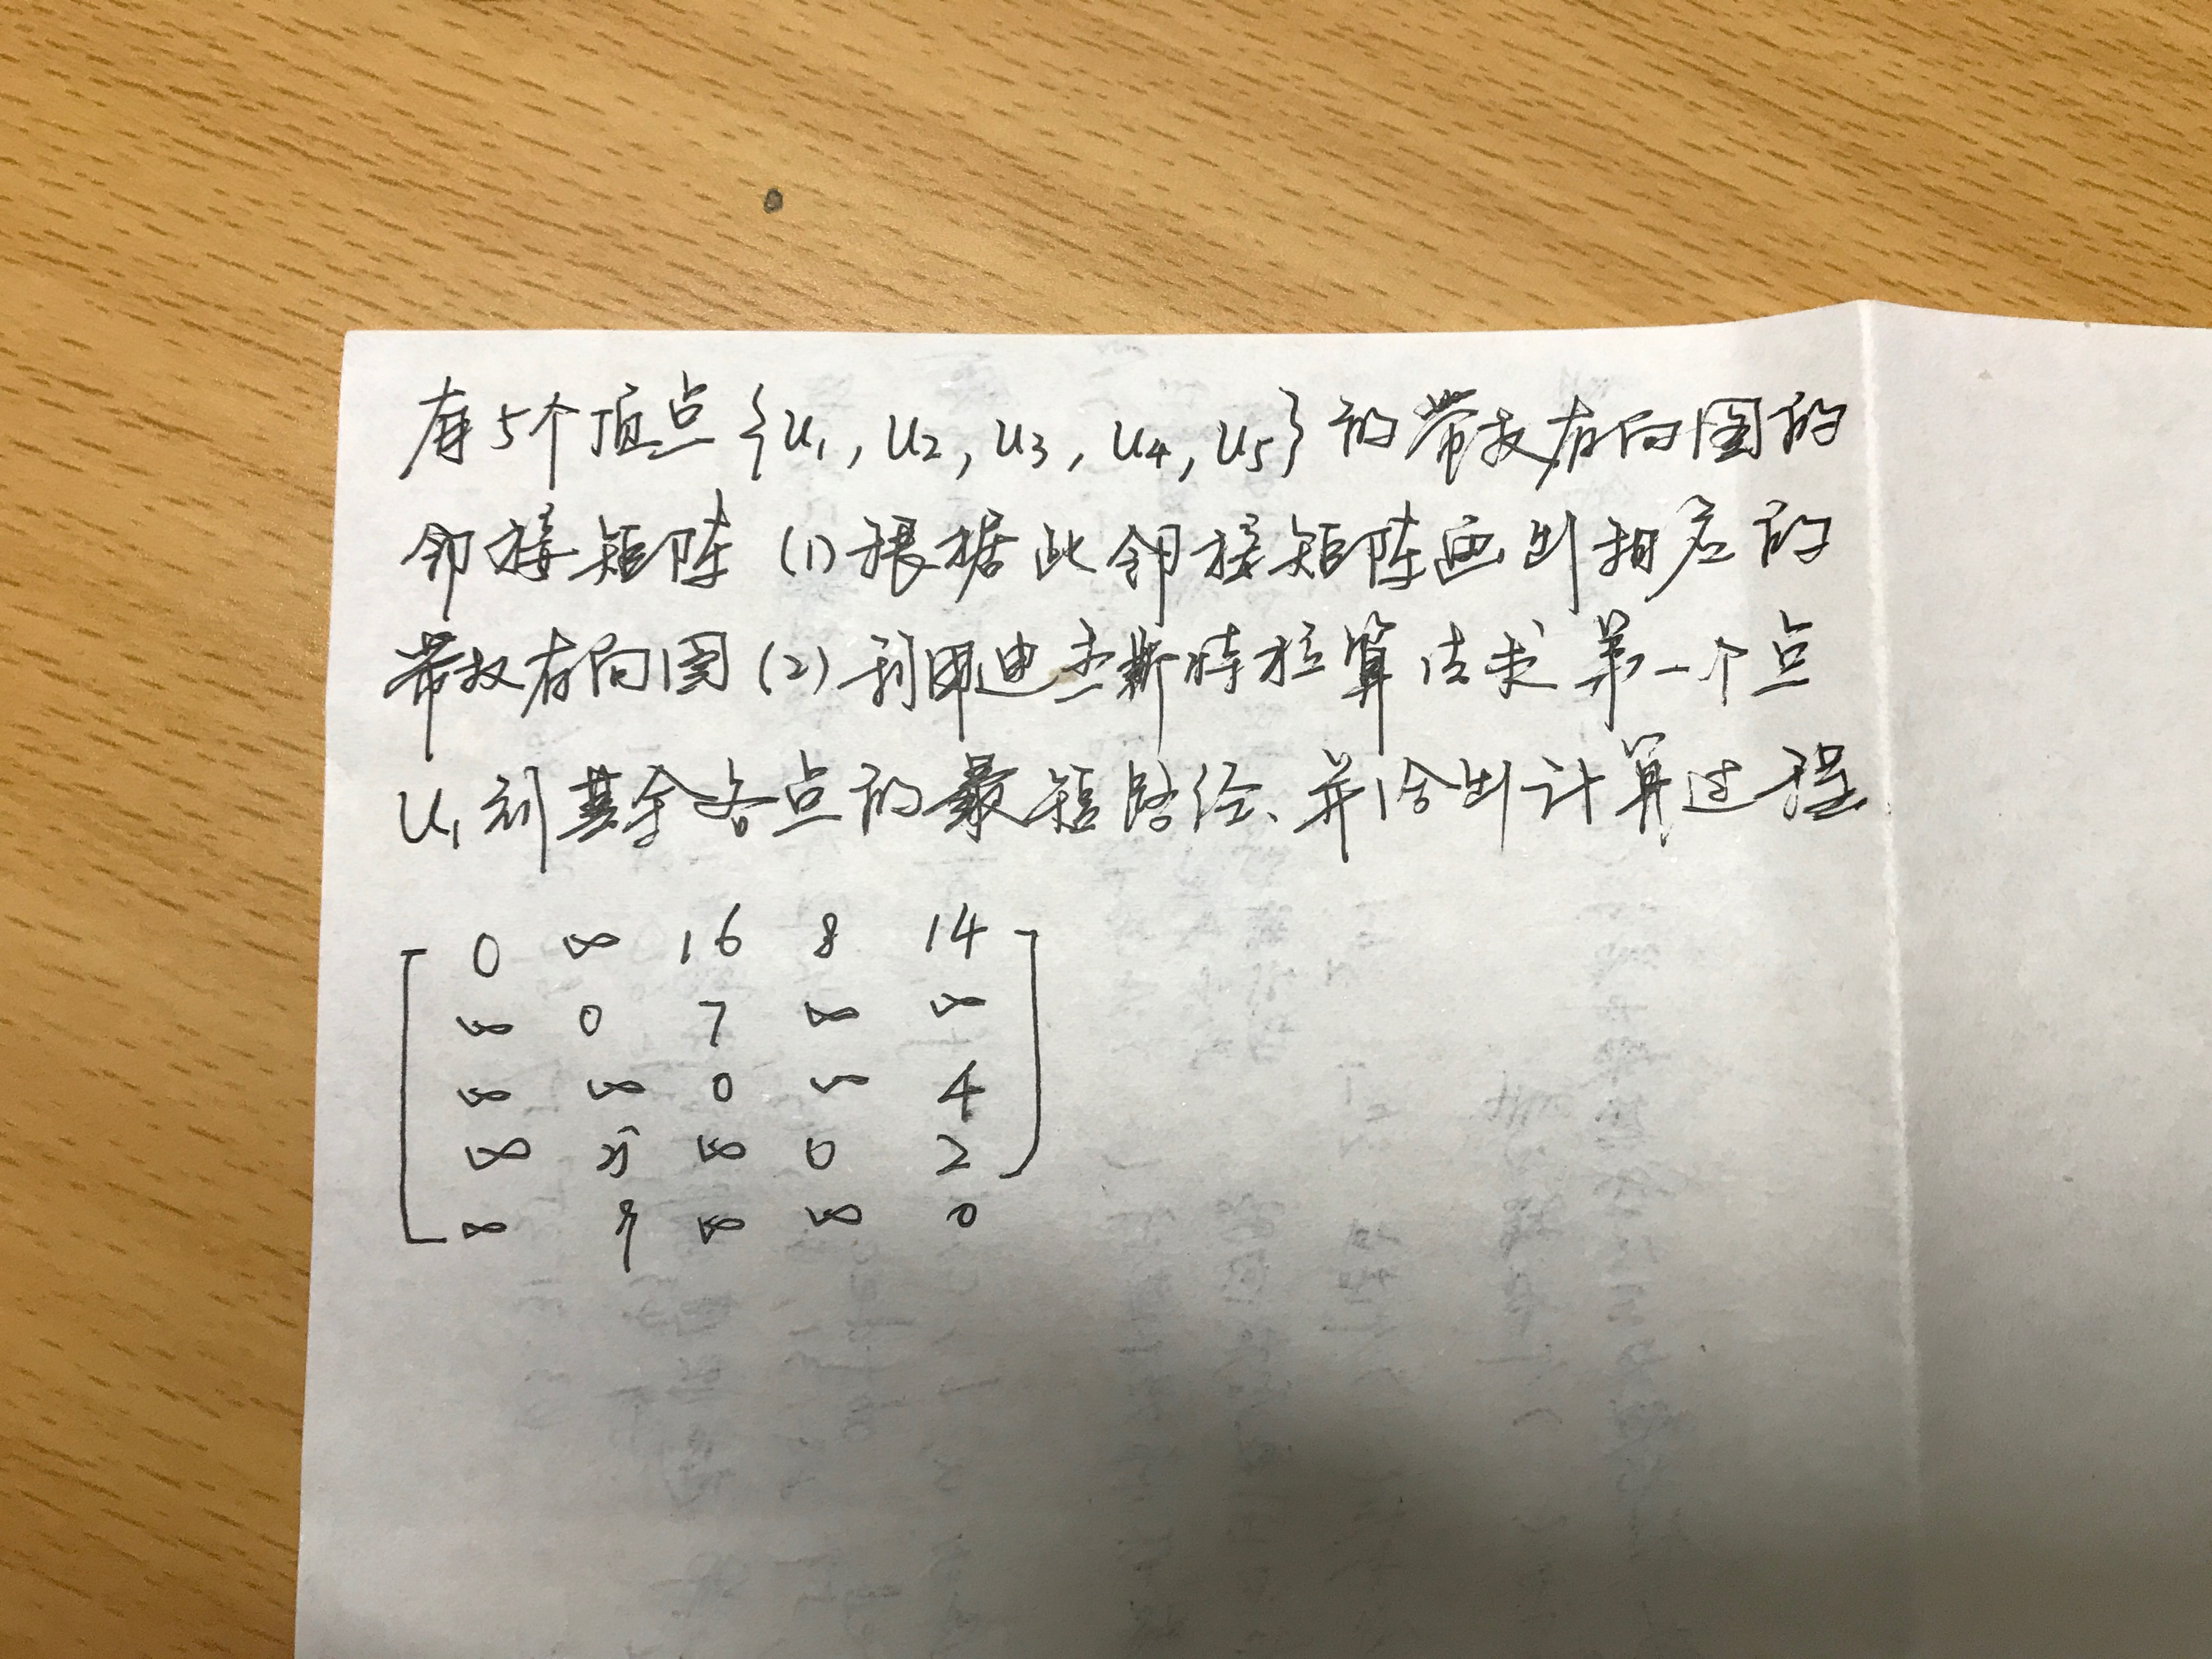 有5个顶点{u1,u2,u3,u4,u5}的带权有向图的
邻接矩阵 (1)根据此邻接矩阵画出相应的
带权有向图(2)利用迪杰斯特拉算法求第一个点
u1到其余各点的最短路径、并给出计算过程.
0 ∞ 16 8 14
∞ 0 7 ∞ ∞
∞ ∞ 0 ∞ 4
∞ ∞ 0 2
∞ ∞ ∞ 0